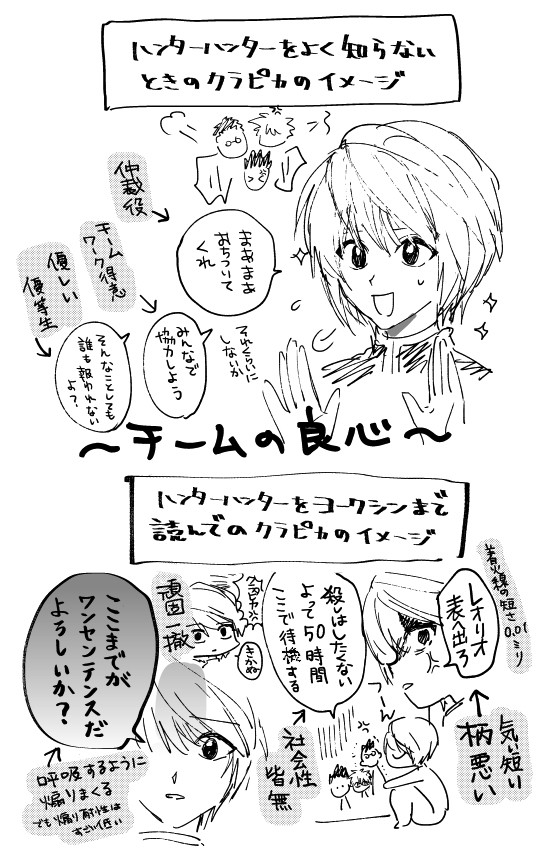 ハンターハンターをよく知らない
ときのクラピカのイメージ
仲裁役
まあまあ
おちついて
くれ
チーム得意
ワーク
みんなで
協力しよう
それくらいに
しないか
優しい
優等生
そんなことしても
誰も報われない
よ?
～チームの良心～
ハンターハンターをヨークシンまで
読んでのクラピカのイメージ
着火線の短さ0.01ミリ
レオリオ
表出ろ
気い短い
柄悪い
殺しはしたくない
よって50時間
ここで待機する
社会性
皆無
頑固一徹
きかぬ
ここまでが
ワンセンテンスだ
よろしいか?
呼吸するように
煽りまくる
でも煽り耐性は
すごい低い